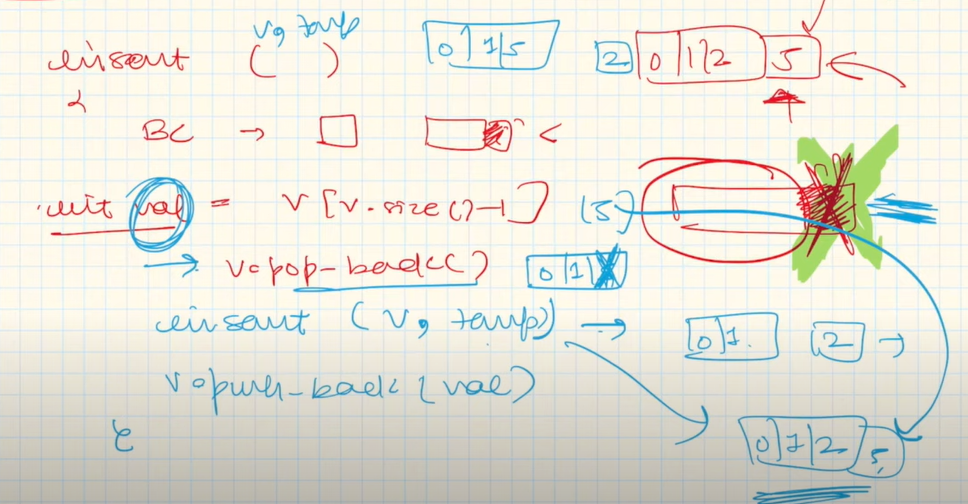 v, temp
insert ( ) 0 1 5 2 0 1 2 5
{
BC → <
int val = v[v.size()-1] (5)
→ v.pop_back() 0 1
insert (v, temp) → 0 1 2 →
v.push_back(val)
} 0 1 2 5